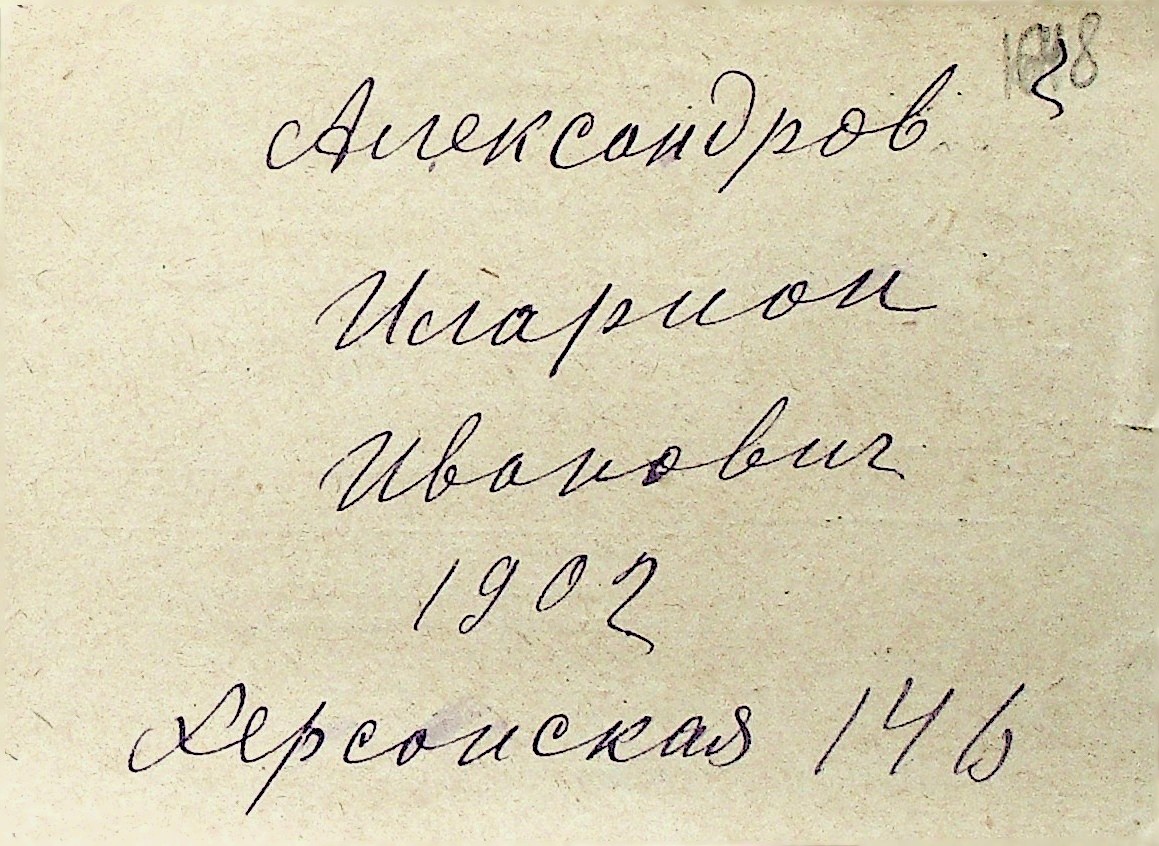 Александров
Иларион
Иванович
1902
Херсонская 146